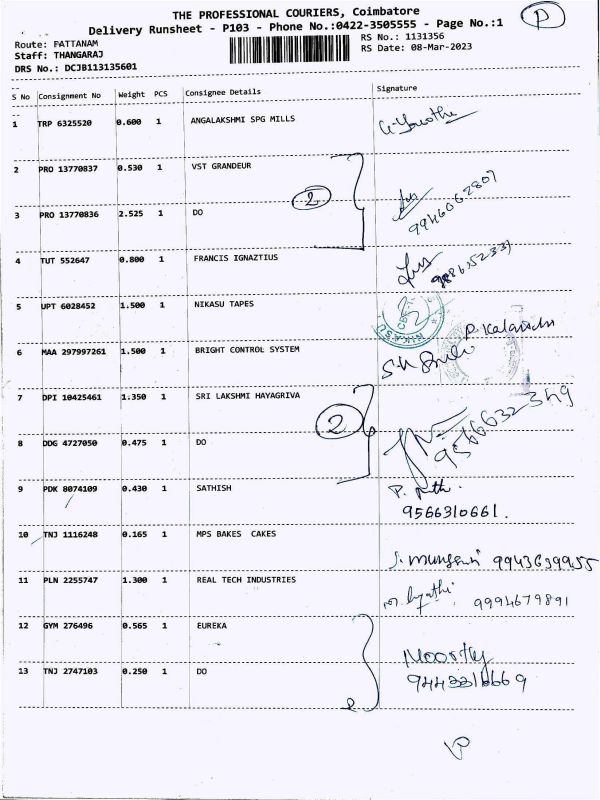 THE PROFESSIONAL COURIERS, Coimbatore
Delivery Runsheet - P103 - Phone No.:0422-3505555 - Page No.:1
P
Route: PATTANAM
RS No.: 1131356
Staff: THANGARAJ
RS Date: 08-Mar-2023
DRS No.: DCJB113135601
S No Consignment No Weight PCS Consignee Details Signature
1 TRP 6325520 0.600 1 ANGALAKSHMI SPG MILLS
2 PRO 13770837 0.530 1 VST GRANDEUR
2
3 PRO 13770836 2.525 1 DO
4 TUT 552647 0.800 1 FRANCIS IGNAZTIUS
5 UPT 6028452 1.500 1 NIKASU TAPES
6 MAA 297997261 1.500 1 BRIGHT CONTROL SYSTEM
7 DPI 10425461 1.350 1 SRI LAKSHMI HAYAGRIVA
2
9566632349
8 DDG 4727050 0.475 1 DO
9 PDK 8074109 0.430 1 SATHISH
9566310661.
10 TNJ 1116248 0.165 1 MPS BAKES CAKES
9943639955
11 PLN 2255747 1.300 1 REAL TECH INDUSTRIES
9994679891
12 GYM 276496 0.565 1 EUREKA
Moorthy
13 TNJ 2747103 0.250 1 DO